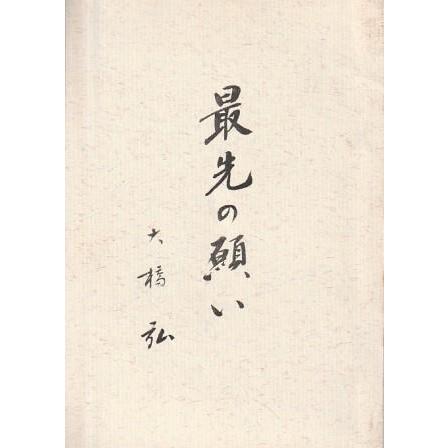 最先の願い
大橋弘